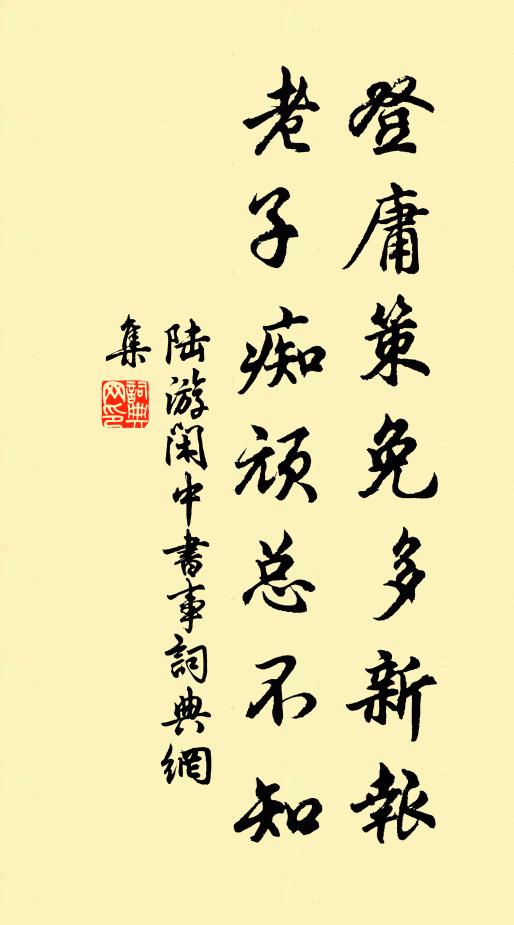 登庸策免多新報
老子痴頑总不知
陆游閑中書事詞典網
集
詞典
网印